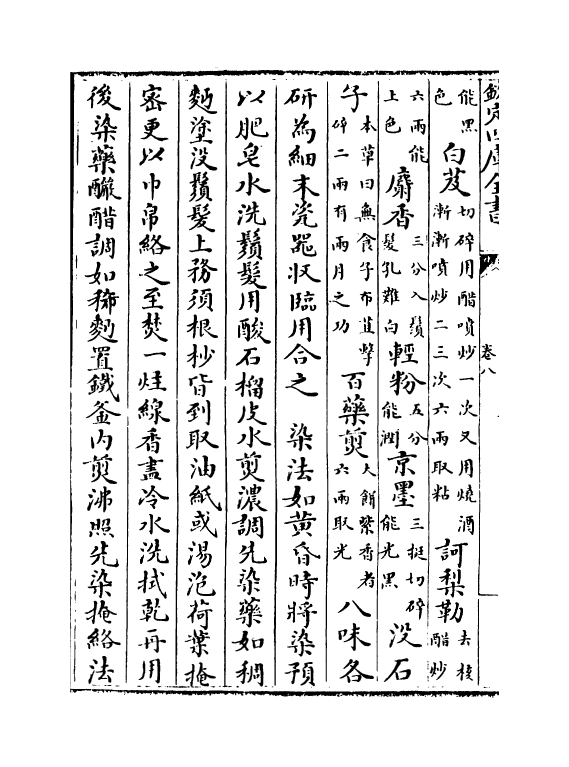 欽定四庫全書
卷八
能黑色 白芨 切碎用醋噴炒一次又用燒酒漸漸噴炒二三次六兩取粘 訶梨勒 去核醋炒
六兩能上色 麝香 三分入鬚髮孔難白 輕粉 五分能潤 京墨 三挺切碎能光黑 没石
子 本草曰無食子布苴擊碎二兩有兩月之功 百藥煎 大餅繫香者六兩取光 八味各
研為細末瓷器收臨用合之 染法如黄昏時將染預
以肥皂水洗鬚髮用酸石榴皮水煎濃調先染藥如稠
麪塗没鬚髮上務須根杪皆到取油紙或湯泡荷葉掩
密更以巾帛絡之至焚一炷線香盡冷水洗拭乾再用
後染藥釅醋調如稀麪置鐵釜内煎沸照先染掩絡法